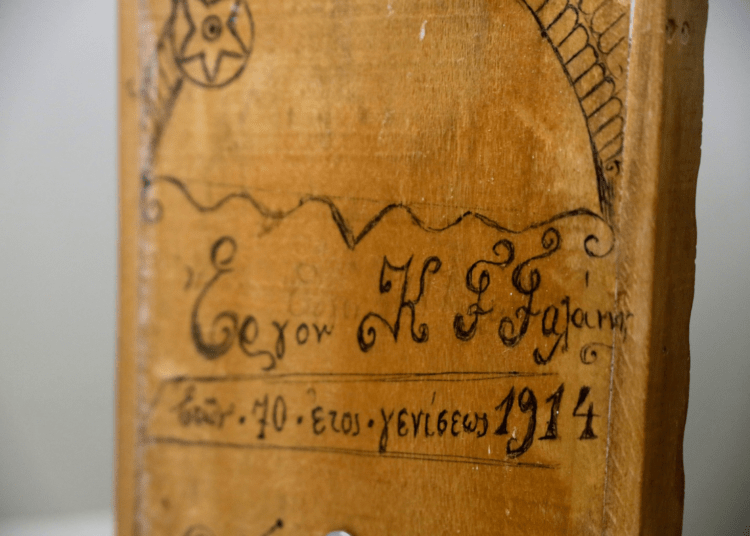 Ἔργον Κ Γ Γαλάνη
ἐτῶν · 70 · ἔτος · γενίσεως 1914